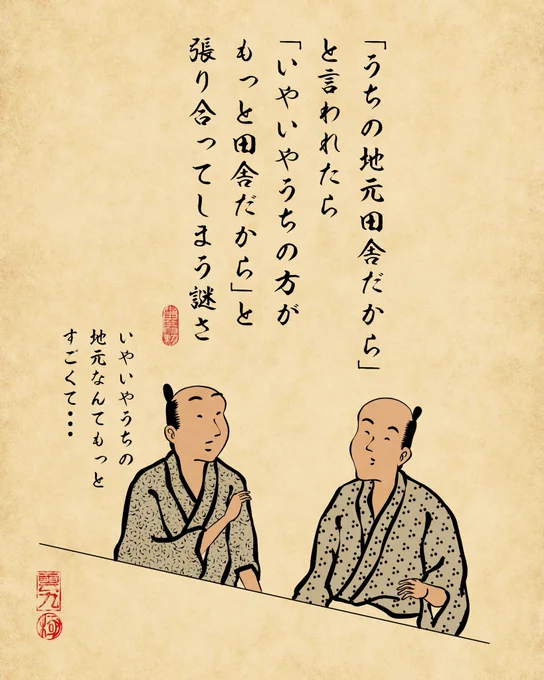 「うちの地元田舎だから」
と言われたら
「いやいやうちの方が
もっと田舎だから」と
張り合ってしまう謎さ
いやいやうちの
地元なんてもっと
すごくて・・・